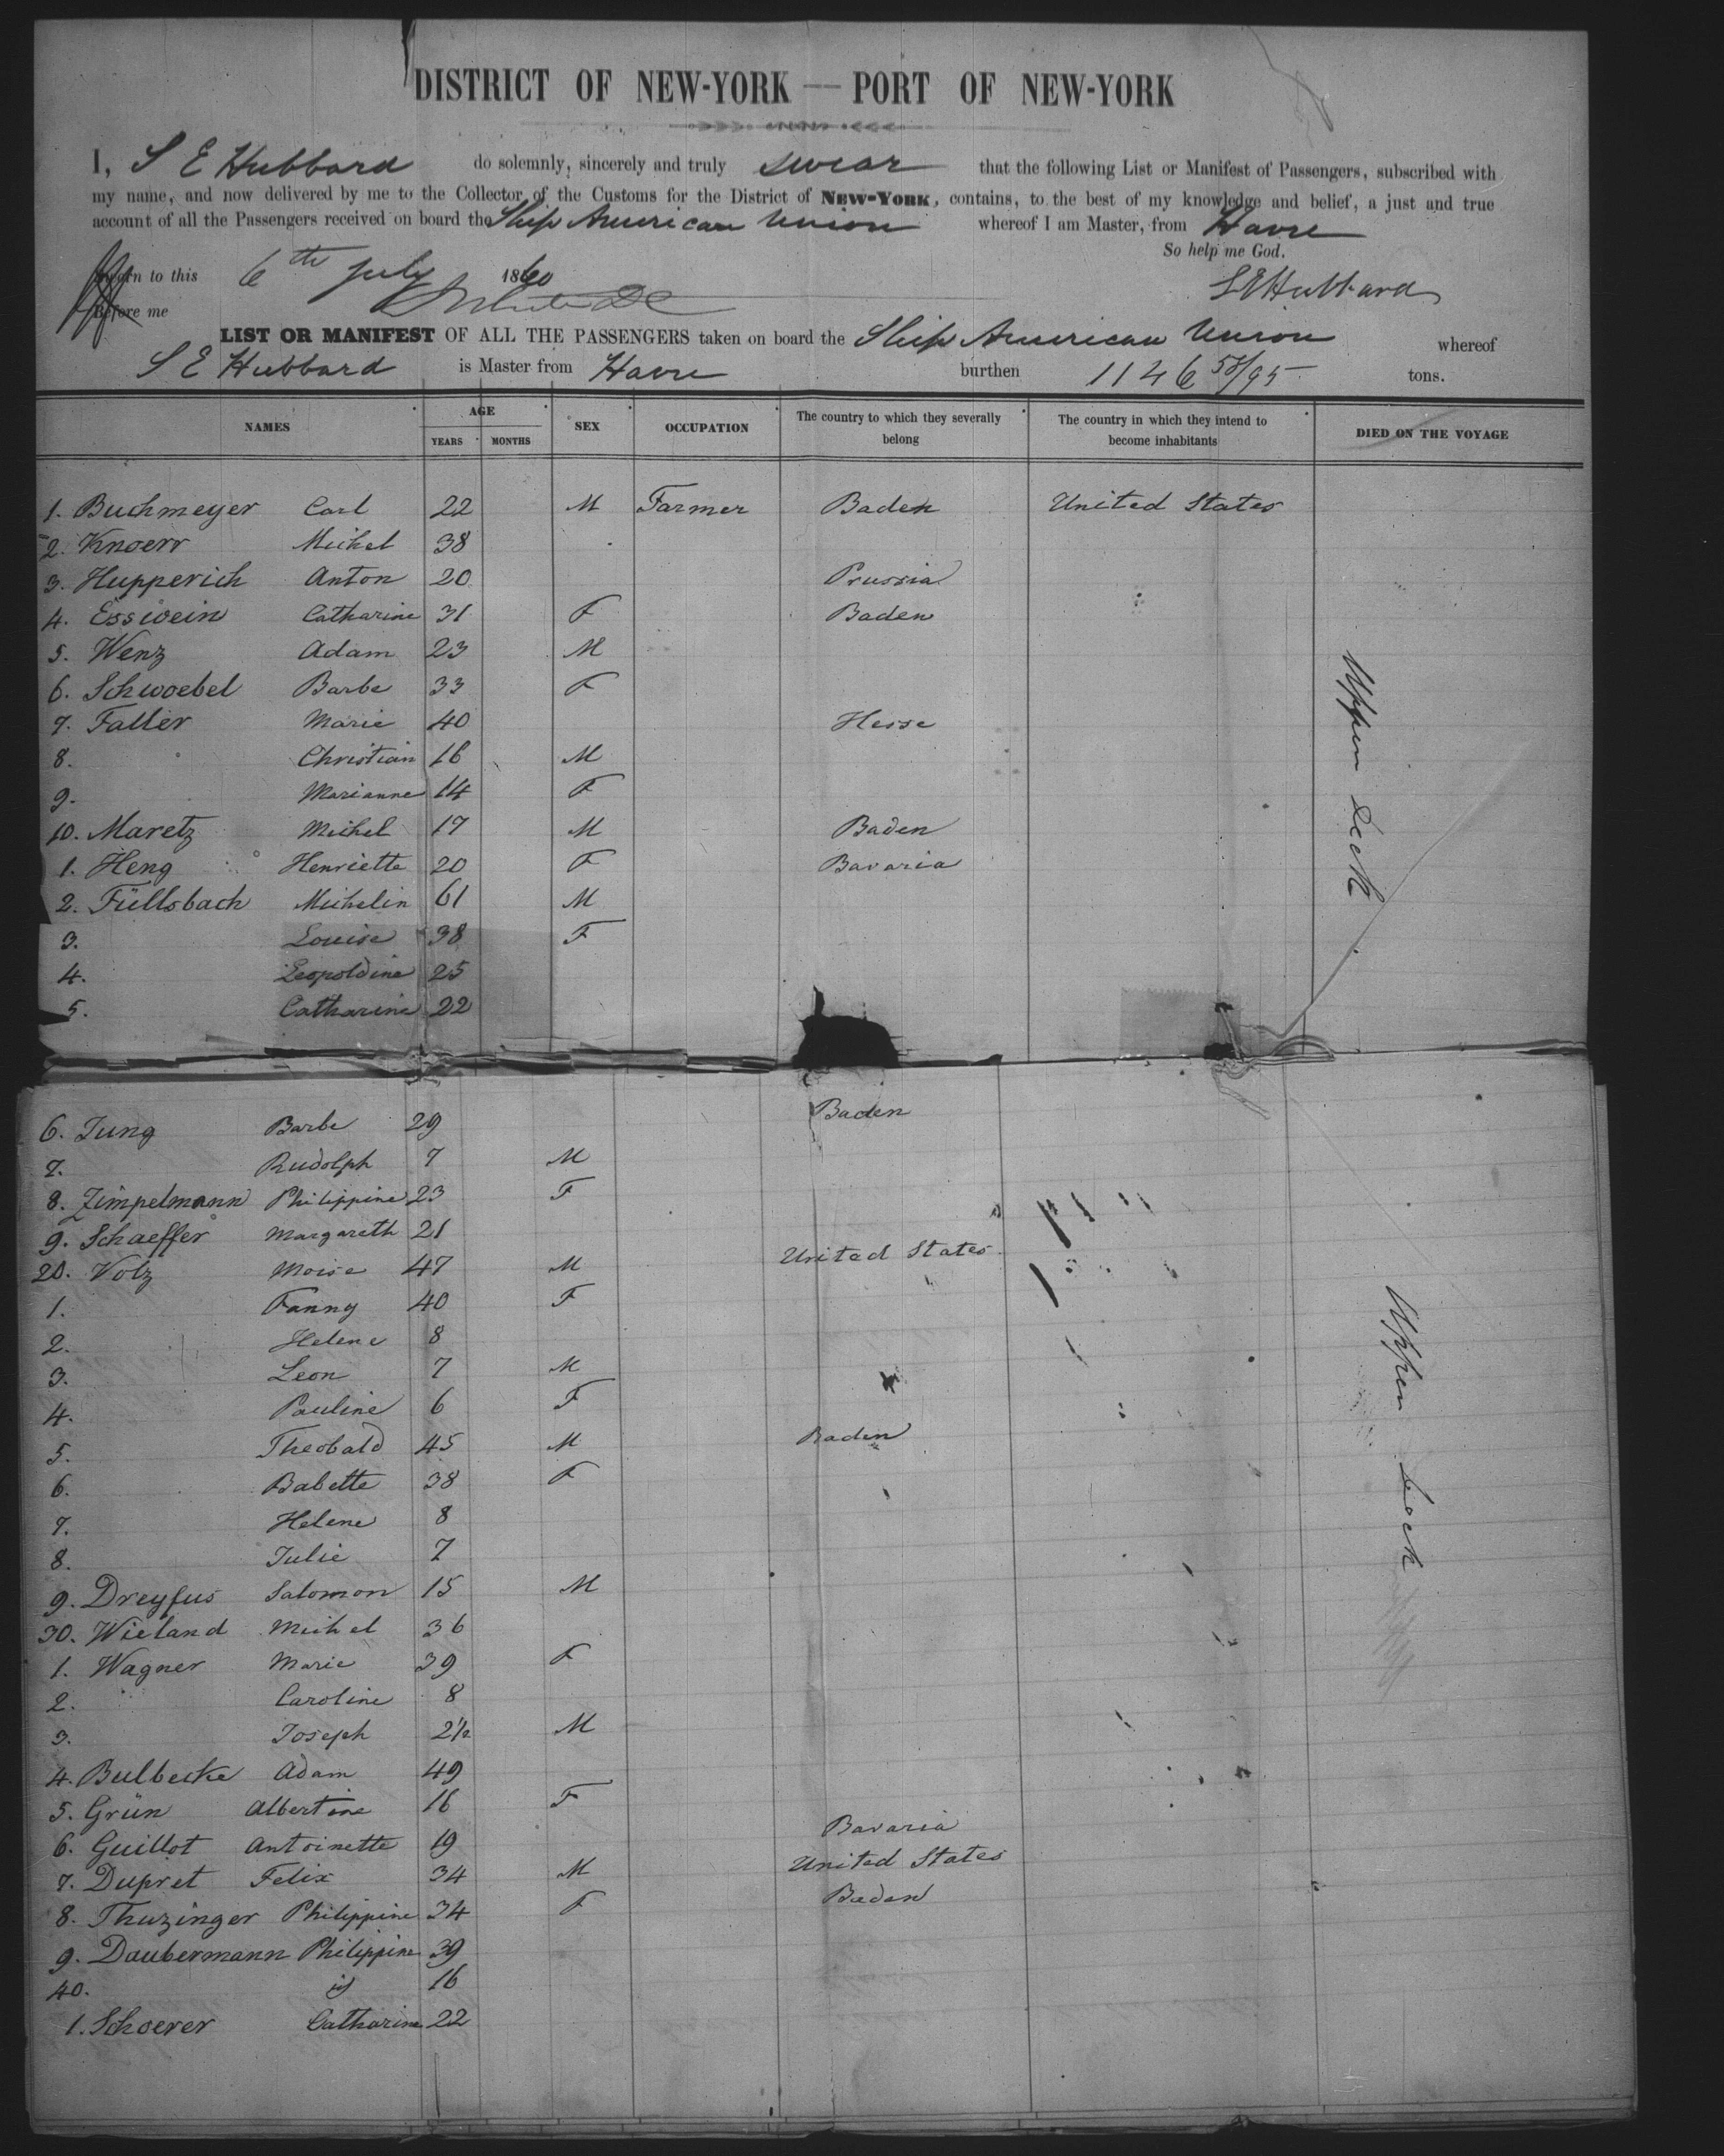 DISTRICT OF NEW-YORK — PORT OF NEW-YORK
I, S E Hubbard do solemnly, sincerely and truly swear that the following List or Manifest of Passengers, subscribed with
my name, and now delivered by me to the Collector of the Customs for the District of NEW-YORK, contains, to the best of my knowledge and belief, a just and true
account of all the Passengers received on board the Ship American Union whereof I am Master, from Havre
So help me God.
Sworn to this 6th July 1860
S E Hubbard
Before me
LIST OR MANIFEST OF ALL THE PASSENGERS taken on board the Ship American Union whereof
S E Hubbard is Master from Havre burthen 1146 58/95 tons.
NAMES AGE YEARS MONTHS SEX OCCUPATION The country to which they severally belong The country in which they intend to become inhabitants DIED ON THE VOYAGE
1. Buchmeyer Carl 22 M Farmer Baden United States
2. Knoerr Michel 38
3. Hupperich Anton 20 Prussia
4. Esswein Catharine 31 F Baden
5. Wenz Adam 23 M
6. Schwoebel Barbe 33 F
7. Faller Marie 40 Hesse
8. Christian 16 M
9. Marianne 14 F
10. Maretz Michel 17 M Baden
1. Heng Henriette 20 F Bavaria
2. Füllsbach Michelin 61 M
3. Louise 38 F
4. Leopoldine 25
5. Catharine 22
Upper Deck
6. Jung Barbe 29 Baden
7. Rudolph 7 M
8. Zimpelmann Philippine 23 F
9. Schaeffer Margareth 21
20. Volz Moise 47 M United States
1. Fanny 40 F
2. Helene 8
3. Leon 7 M
4. Pauline 6 F
5. Theobald 45 M Baden
6. Babette 38 F
7. Helene 8
8. Julie 7
9. Dreyfus Salomon 15 M
30. Wieland Michel 36
1. Wagner Marie 39 F
2. Caroline 8
3. Joseph 2½ M
4. Bulbecke Adam 49
5. Grün Albertine 16 F
6. Guillot Antoinette 19 Bavaria
7. Dupret Felix 34 M United States
8. Thuzinger Philippine 34 F Baden
9. Daubermann Philippine 39
40. id 16
1. Schoerer Catharine 22
Upper Deck